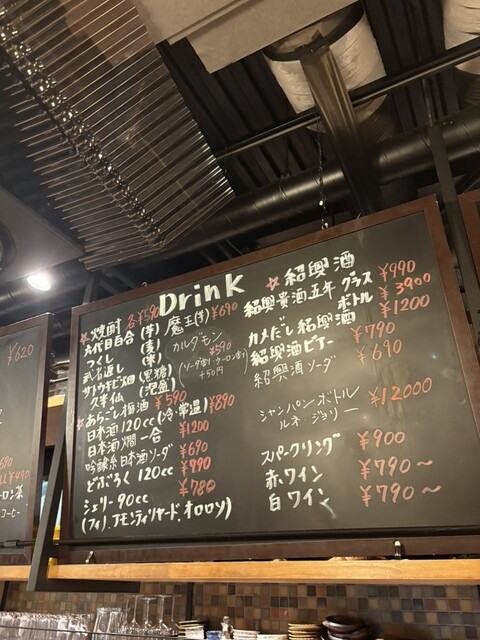 Drink
☆焼酎 各¥590
六代目百合 (芋)
つくし (麦)
武者返し (米)
サトウキビ畑 (黒糖)
久米仙 (泡盛)
魔王(芋) ¥690
カルダモン
¥590
(ソーダ割り・ウーロン割り
+50円)
☆あらごし梅酒 ¥590
日本酒120cc (冷・常温) ¥890
日本酒燗 一合 ¥1200
吟醸糸日本酒ソーダ ¥690
どぶろく 120cc ¥790
シェリー 90cc ¥780
(フィノ、アモンティリヤード、オロロソ)
☆紹興酒
紹興貴酒五年 グラス ¥990
ボトル ¥3900
カメだし紹興酒 ¥1200
紹興酒ビアー ¥790
紹興酒ソーダ ¥690
シャンパンボトル ¥12000
ルネ・ジョリー
スパークリング ¥900
赤ワイン ¥790～
白ワイン ¥790～
¥620
690
¥490
ーロン茶
コーヒー